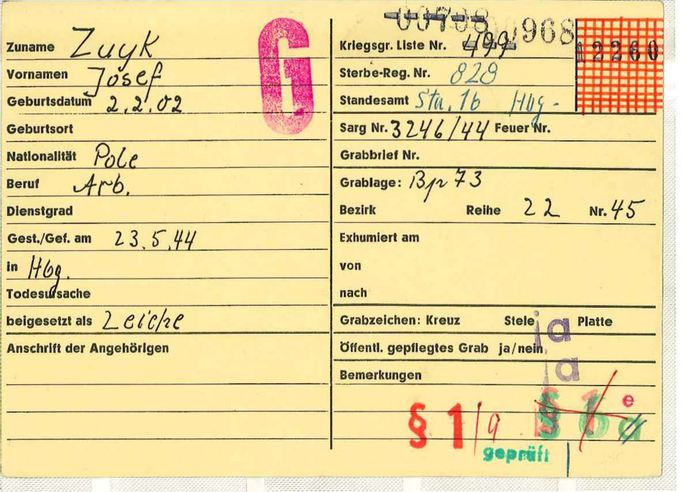 Zuname Zuyk
Vornamen Josef
Geburtsdatum 2.2.02
Geburtsort
Nationalität Pole
Beruf Arb.
Dienstgrad
Gest./Gef. am 23.5.44
in Hbg.
Todesursache
beigesetzt als Leiche
Anschrift der Angehörigen
G
00708
968
Kriegsgr. Liste Nr. 499
12260
Sterbe-Reg. Nr. 828
Standesamt Stu. 1b Hbg.
Sarg Nr. 3246/44 Feuer Nr.
Grabbrief Nr.
Grablage: Bp 73
Bezirk Reihe 22 Nr. 45
Exhumiert am
von
nach
Grabzeichen: Kreuz Stele Platte
ja
Öffentl. gepflegtes Grab ja/nein
a
Bemerkungen
§ 1/9
e
geprüft